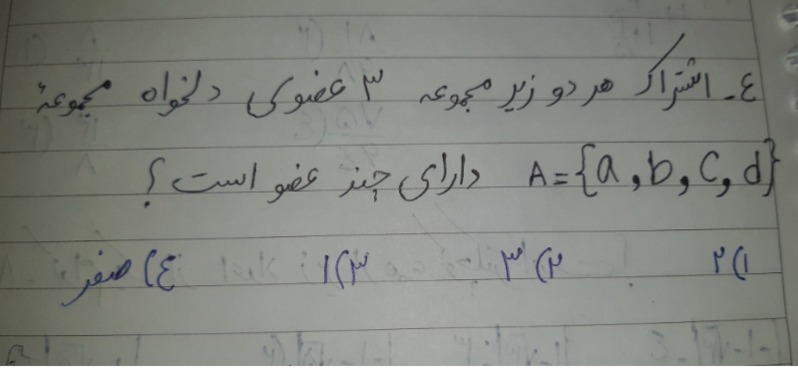 ٤- اشتراک هر دو زیر مجموعه ۳ عضوی دلخواه مجموعهٔ
A={a,b,c,d} دارای چند عضو است؟
۱) ۲ ۲) ۳ ۳) ۱ ٤) صفر